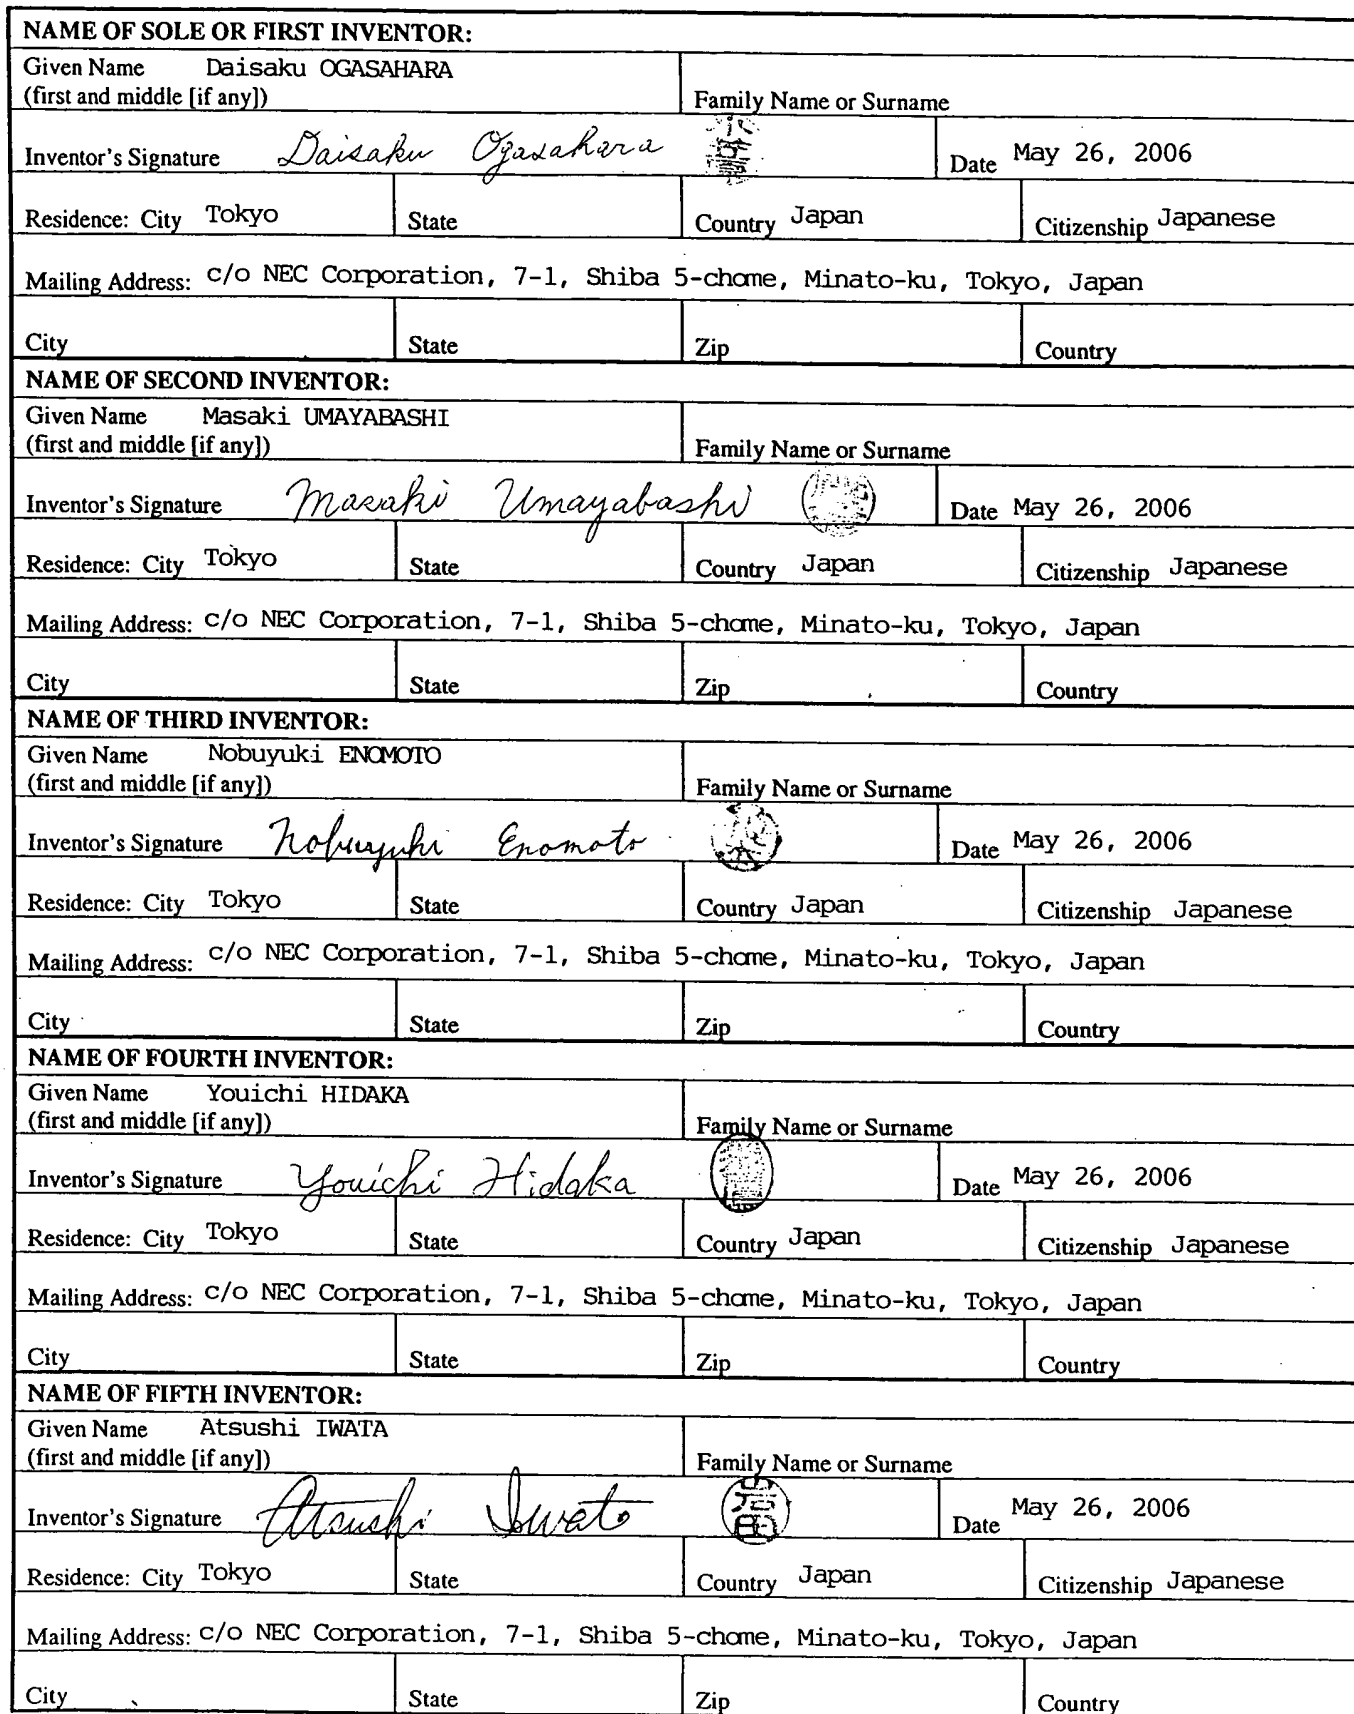 NAME OF SOLE OR FIRST INVENTOR:
Given Name Daisaku OGASAHARA
(first and middle [if any]) Family Name or Surname
Inventor's Signature Daisaku Ogasahara Date May 26, 2006
Residence: City Tokyo State Country Japan Citizenship Japanese
Mailing Address: c/o NEC Corporation, 7-1, Shiba 5-chome, Minato-ku, Tokyo, Japan
City State Zip Country
NAME OF SECOND INVENTOR:
Given Name Masaki UMAYABASHI
(first and middle [if any]) Family Name or Surname
Inventor's Signature Masaki Umayabashi Date May 26, 2006
Residence: City Tokyo State Country Japan Citizenship Japanese
Mailing Address: c/o NEC Corporation, 7-1, Shiba 5-chome, Minato-ku, Tokyo, Japan
City State Zip Country
NAME OF THIRD INVENTOR:
Given Name Nobuyuki ENOMOTO
(first and middle [if any]) Family Name or Surname
Inventor's Signature Nobuyuki Enomoto Date May 26, 2006
Residence: City Tokyo State Country Japan Citizenship Japanese
Mailing Address: c/o NEC Corporation, 7-1, Shiba 5-chome, Minato-ku, Tokyo, Japan
City State Zip Country
NAME OF FOURTH INVENTOR:
Given Name Youichi HIDAKA
(first and middle [if any]) Family Name or Surname
Inventor's Signature Youichi Hidaka Date May 26, 2006
Residence: City Tokyo State Country Japan Citizenship Japanese
Mailing Address: c/o NEC Corporation, 7-1, Shiba 5-chome, Minato-ku, Tokyo, Japan
City State Zip Country
NAME OF FIFTH INVENTOR:
Given Name Atsushi IWATA
(first and middle [if any]) Family Name or Surname
Inventor's Signature Atsushi Iwata 岩田 Date May 26, 2006
Residence: City Tokyo State Country Japan Citizenship Japanese
Mailing Address: c/o NEC Corporation, 7-1, Shiba 5-chome, Minato-ku, Tokyo, Japan
City State Zip Country